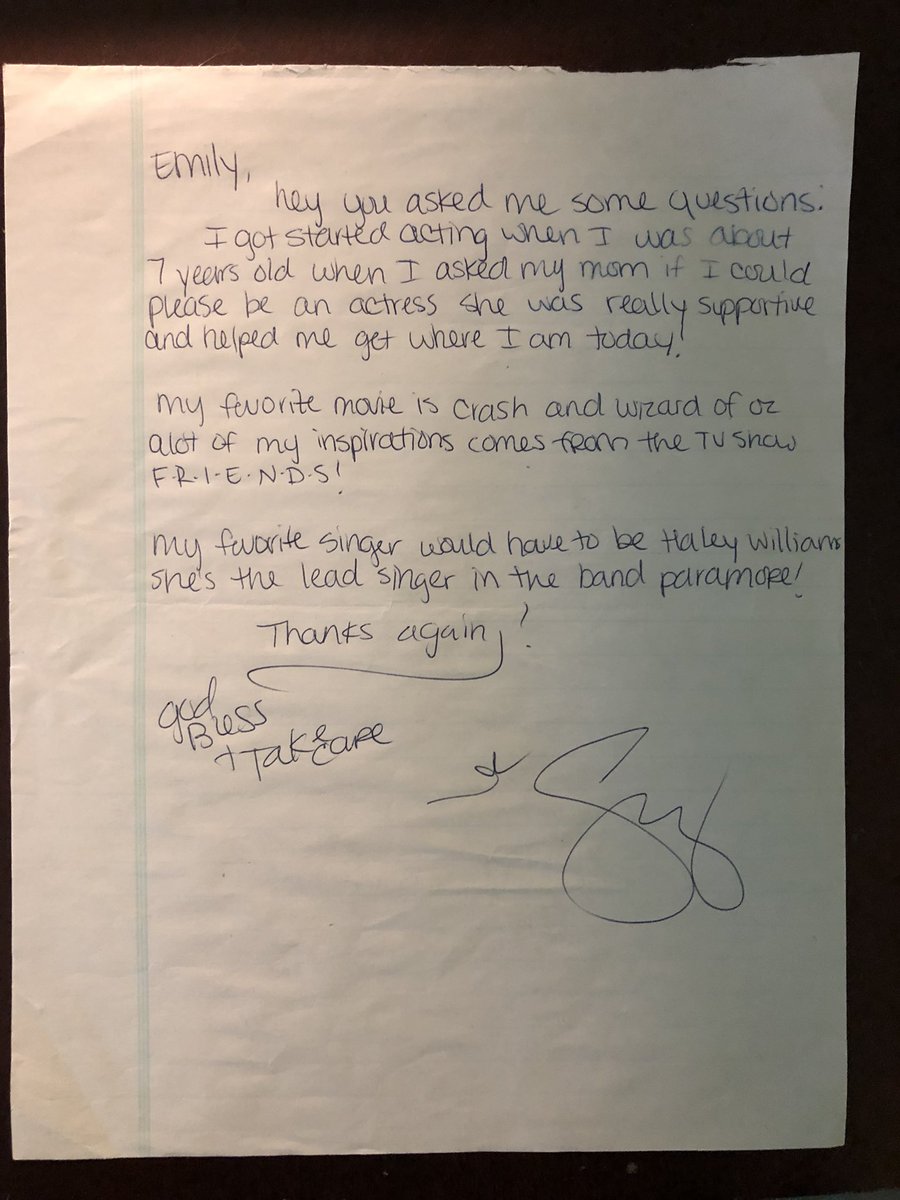 Emily,
hey you asked me some questions:
I got started acting when I was about
7 years old when I asked my mom if I could
please be an actress she was really supportive
and helped me get where I am today!
my favorite movie is crash and wizard of oz
alot of my inspirations comes from the TV show
F·R·I·E·N·D·S!
my favorite singer would have to be Haley Williams
she's the lead singer in the band paramore!
Thanks again!
god
Bless
+ Take
care